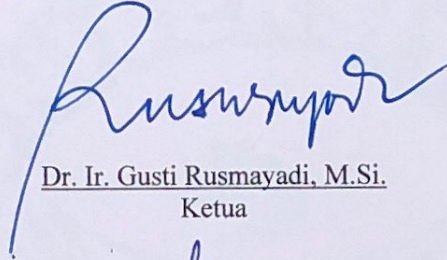 Rusmayadi
Dr. Ir. Gusti Rusmayadi, M.Si.
Ketua